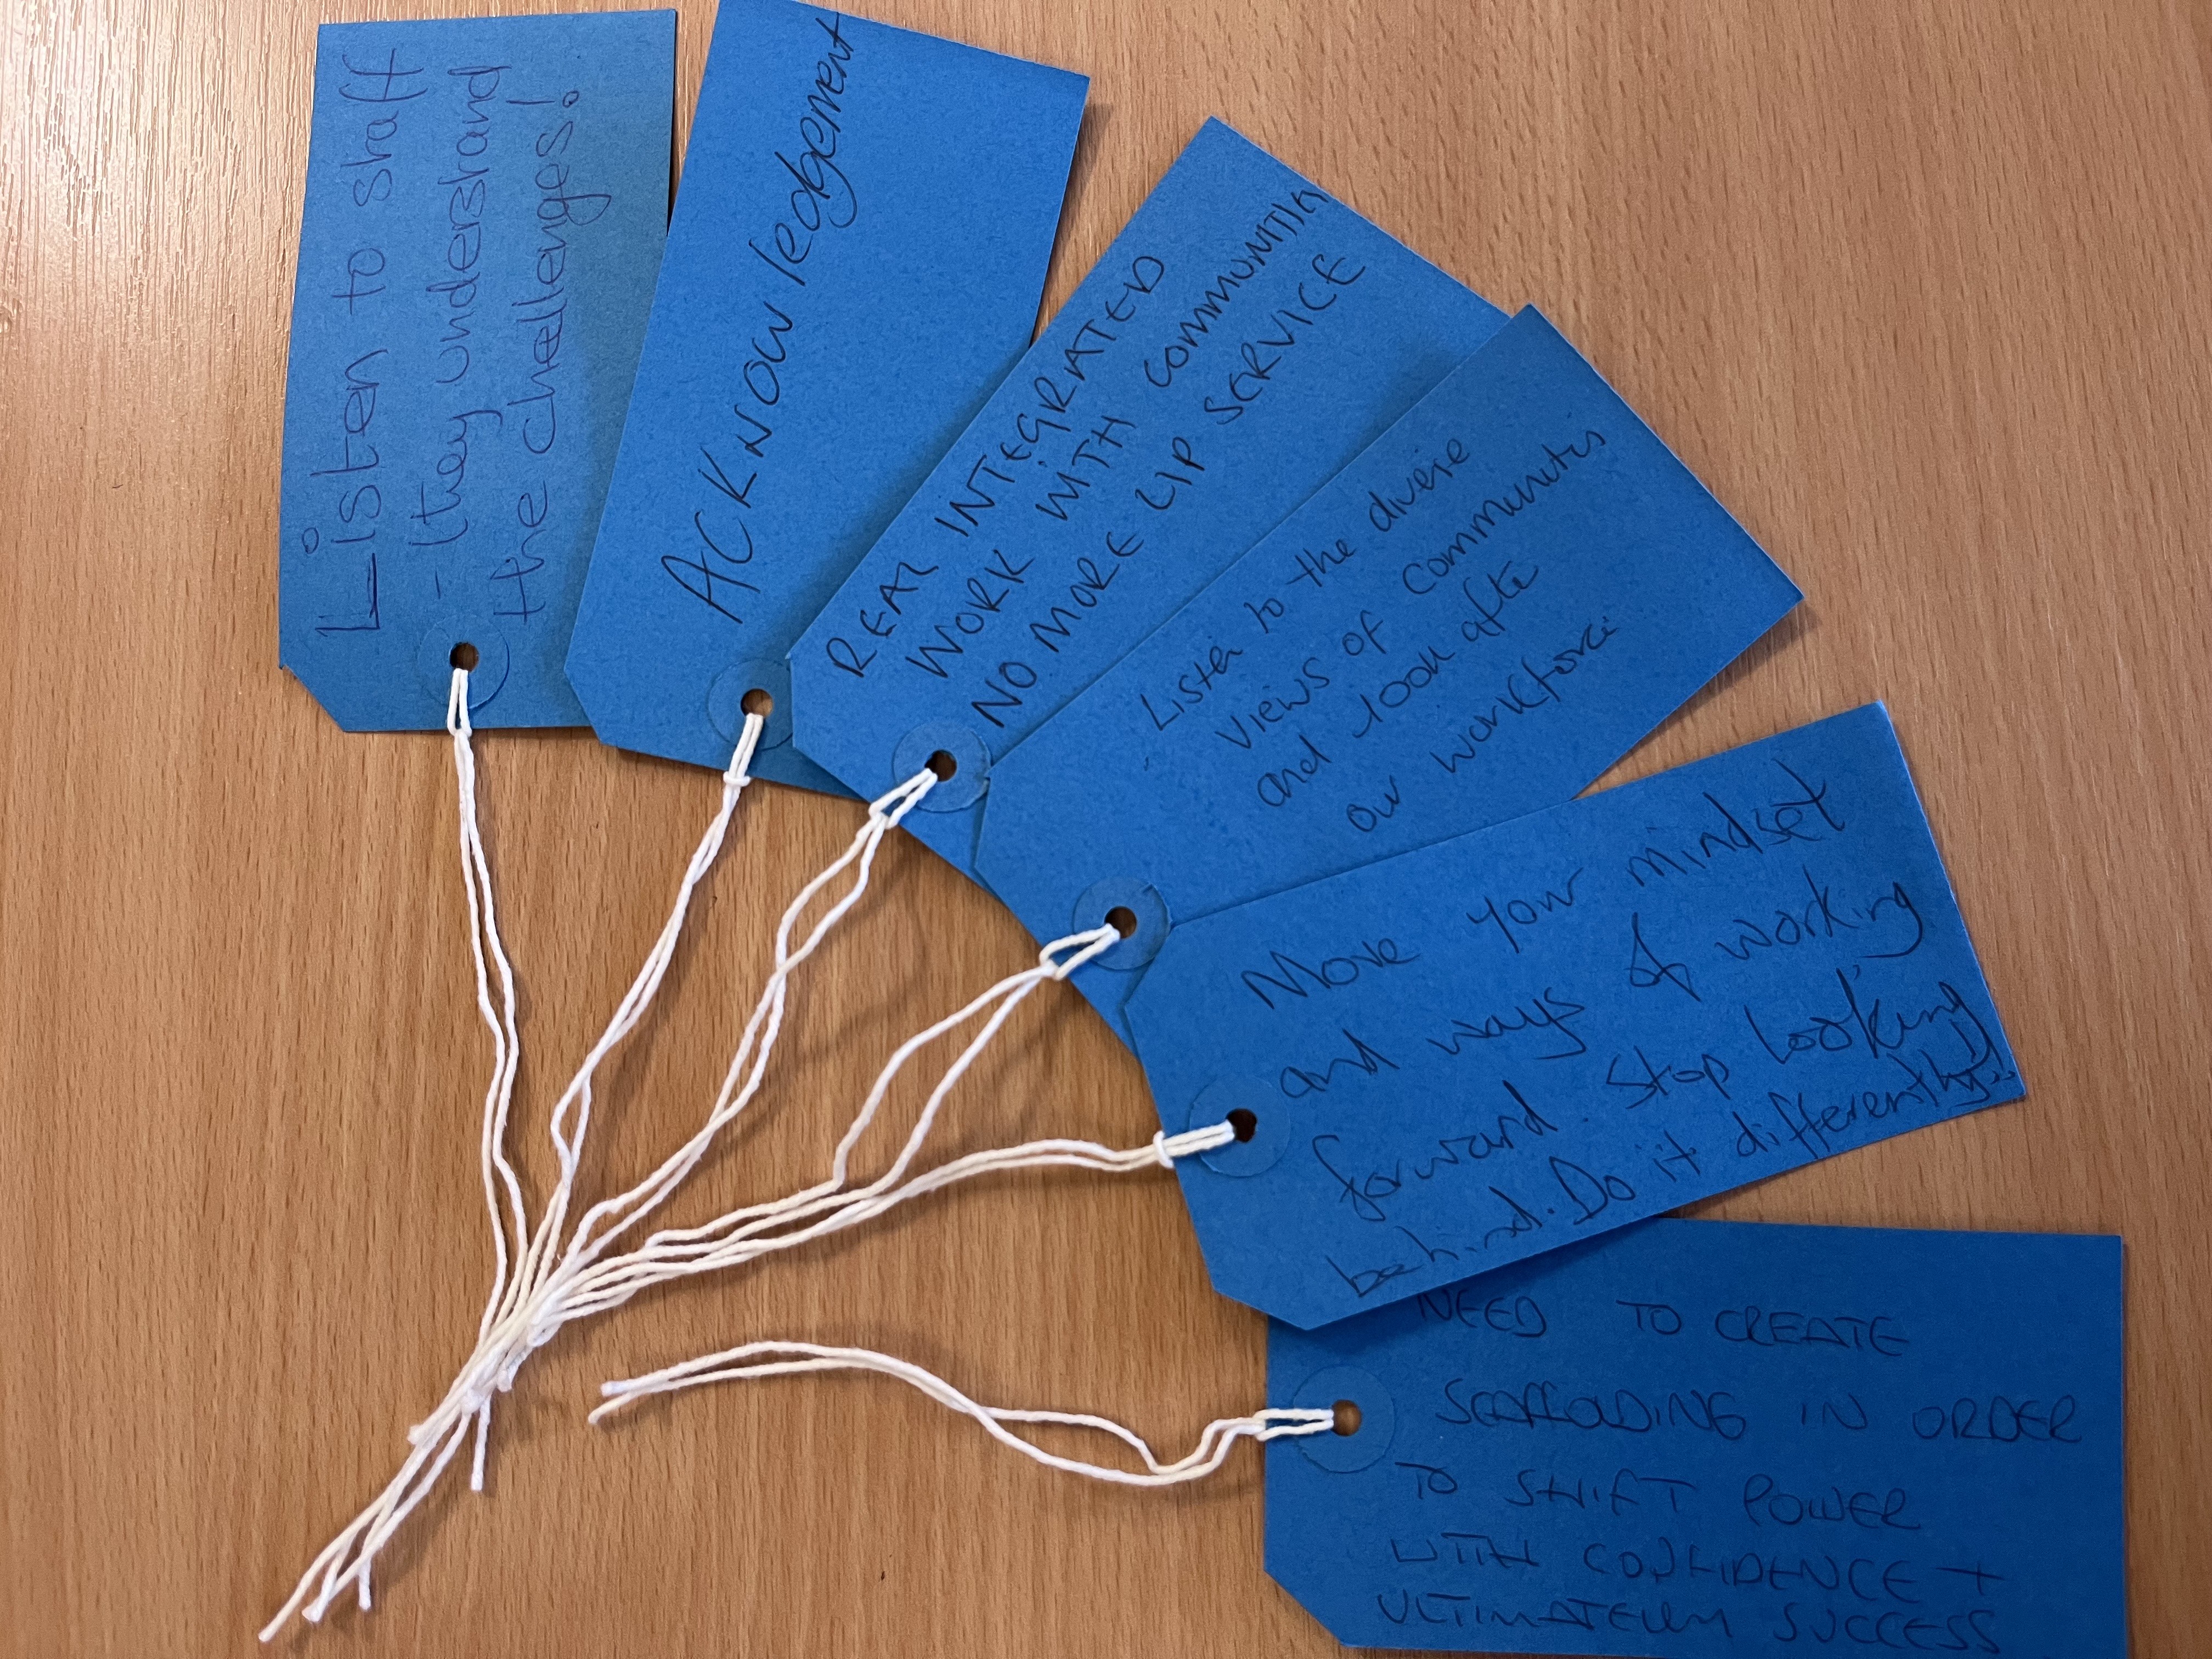 Listen to staff
- they understand
the challenges!
ACKNOWledgement
REAL INTEGRATED
WORK WITH COMMUNITIES
NO MORE LIP SERVICE
Listen to the diverse
views of communities
and look after
our workforce
Move your mindset
and ways of working
forward. Stop looking
behind. Do it differently!!
NEED TO CREATE
SCAFFOLDING IN ORDER
TO SHIFT POWER
WITH CONFIDENCE +
ULTIMATELY SUCCESS